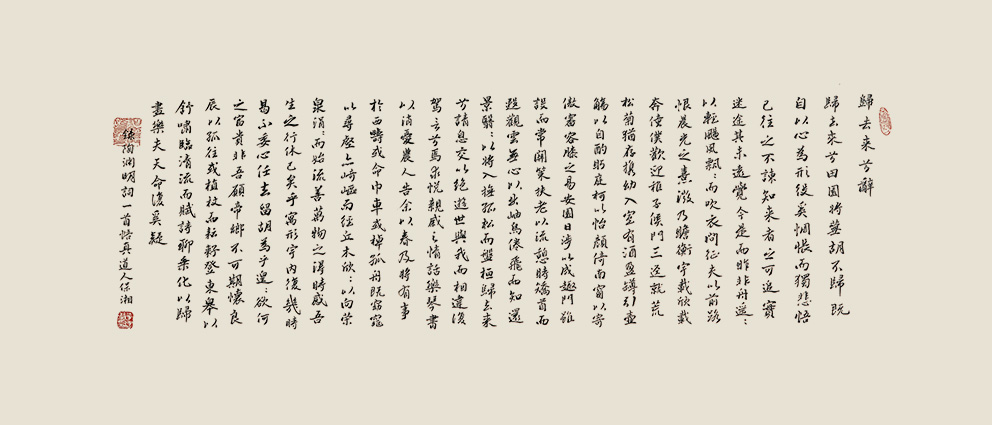 歸去來兮辭
歸去來兮田園將蕪胡不歸既
自以心為形役奚惆悵而獨悲悟
已往之不諫知來者之可追實
迷途其未遠覺今是而昨非舟遙:
以輕颺風飄:而吹衣問征夫以前路
恨晨光之熹微乃瞻衡宇載欣載
奔僮僕歡迎稚子候門三逕就荒
松菊猶存攜幼入室有酒盈罇引壺
觴以自酌眄庭柯以怡顏倚南窗以寄
傲審容膝之易安園日涉以成趣門雖
設而常關策扶老以流憩時矯首而
遐觀雲無心以出岫鳥倦飛而知還
景翳:以將入撫孤松而盤桓歸去來
兮請息交以絕遊世與我而相違復
駕言兮焉求悅親戚之情話樂琴書
以消憂農人告余以春及將有事
於西疇或命巾車或棹孤舟既窈窕
以尋壑亦崎嶇而經丘木欣:以向榮
泉涓:而始流善萬物之得時感吾
生之行休已矣乎寓形宇內復幾時
曷不委心任去留胡為乎遑:欲何
之富貴非吾願帝鄉不可期懷良
辰以孤往或植杖而耘耔登東皋以
舒嘯臨清流而賦詩聊乘化以歸
盡樂夫天命復奚疑
錄陶淵明詞一首悟真道人保湘